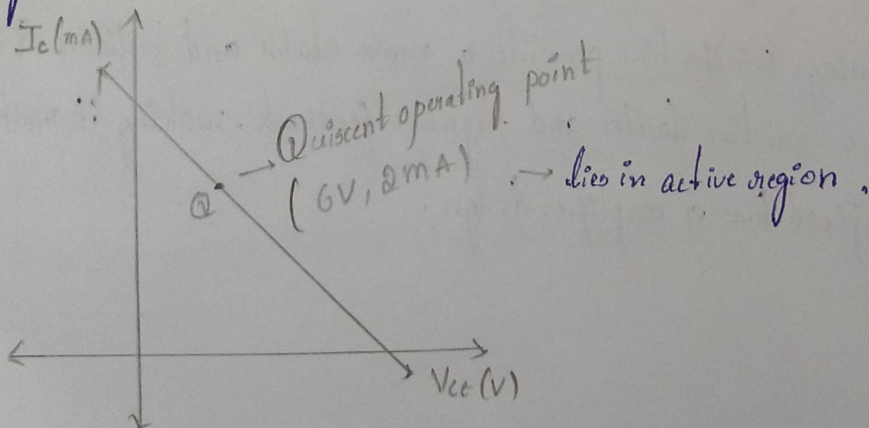 Ic (mA)
Quiscent operating point
(6V, 2mA) → lies in active region.
Q
VCE (V)